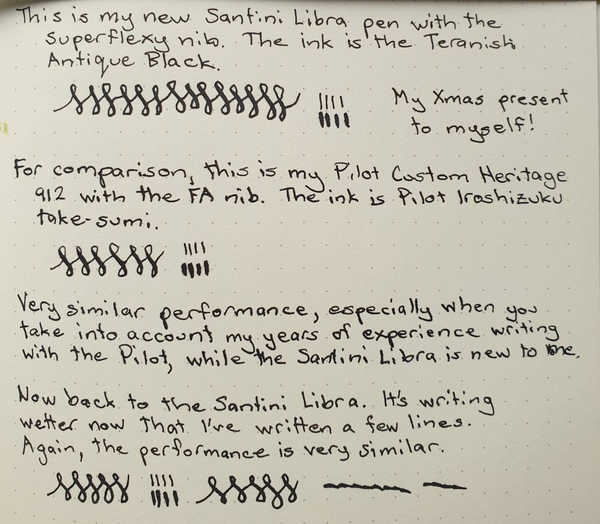 This is my new Santini Libra pen with the
Superflexy nib. The ink is the Teranishi
Antique Black.
My Xmas present
to myself!
For comparison, this is my Pilot Custom Heritage
912 with the FA nib. The ink is Pilot Iroshizuku
take-sumi.
Very similar performance, especially when you
take into account my years of experience writing
with the Pilot, while the Santini Libra is new to me.
Now back to the Santini Libra. It's writing
wetter now that I've written a few lines.
Again, the performance is very similar.